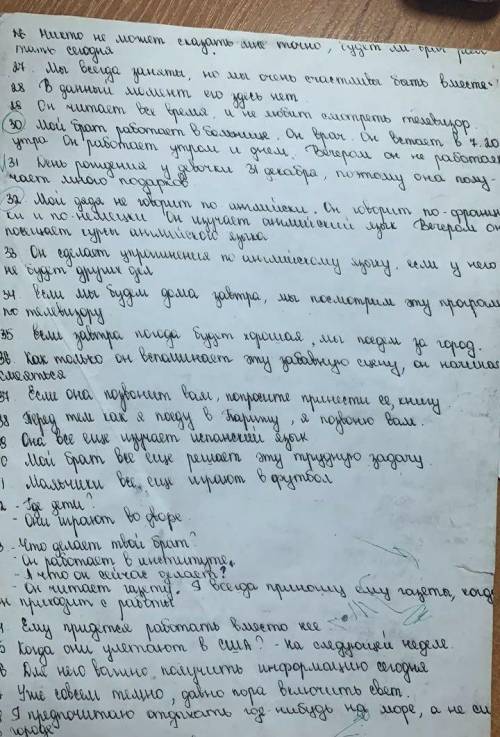 26 Никто не может сказать мне точно, будет ли брат рабо
тать сегодня
27. Мы всегда заняты, но мы очень счастливы быть вместе.
28 В данный момент его здесь нет.
29 Он читает все время, и не любит смотреть телевизор.
30 Мой брат работает в больнице. Он врач. Он встает в 7.20
утра Он работает утром и днем. Вечером он не работает
31 День рождения у девочки 31 декабря, поэтому она полу-
чает много подарков
32. Мой дядя не говорит по английски. Он говорит по-францу
ки и по-немецки Он изучает английский язык Вечером он
посещает курсы английского языка
33 Он сделает упражнения по английскому языку, если у него
не будет других дел
34 Если мы будем дома завтра, мы посмотрим эту програм
по телевизору
35 Если завтра погода будет хорошая, мы поедем за город.
36. Как только он вспоминает эту забавную сцену, он начина
смеяться
37 Если она позвонит вам, попросите принести ее, книгу
38 Перед тем как я поеду в Париж, я позвоню вам.
9 Она все еще изучает испанский язык
0 Мой брат все еще решает эту трудную задачу
1 Мальчики все еще играют в футбол
2 - Где дети?
- Они играют во дворе
3 - Что делает твой брат?
- Он работает в институте.
- А что он сейчас делает?
- Он читает газету. Я всегда приношу ему газеты, когда
он приходит с работы
4 Ему придётся работать вместо нее
5 Когда они улетают в США? - на следующей неделе.
6 Для него важно получить информацию сегодня
7 Уже совсем темно, давно пора включить свет.
8 Я предпочитаю отдыхать где-нибудь на море, а не си
в городе